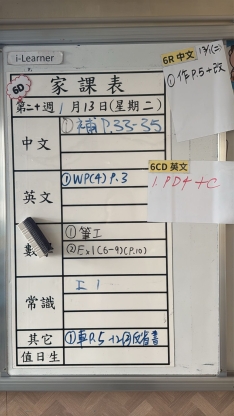 i-Learner
6D
家課表
第二十週 1月13日(星期二)
中文
①補P.33-35
英文
①WP(4) P.3
①筆工
②Ex1(6-9)(P.10)
常識
工1
其它
值日生
6R 中文
①作P.5+改
6CD 英文
1. PD4+C